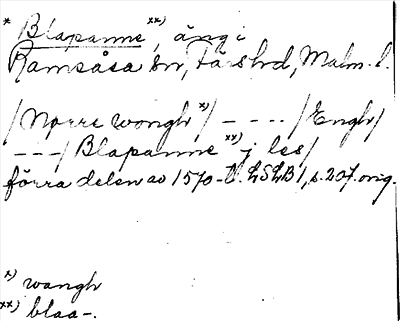 * Blapanne xx), äng i
Ramsåsa sn, Färs hd, Malm. l.
/Nørre wongh x)/ – – – – /Engh/
– – –/ Blapanne xx) j les/
förra delen av 1570-t. LSLB 1, s. 207. orig.
x) wangh
xx) blaa-.